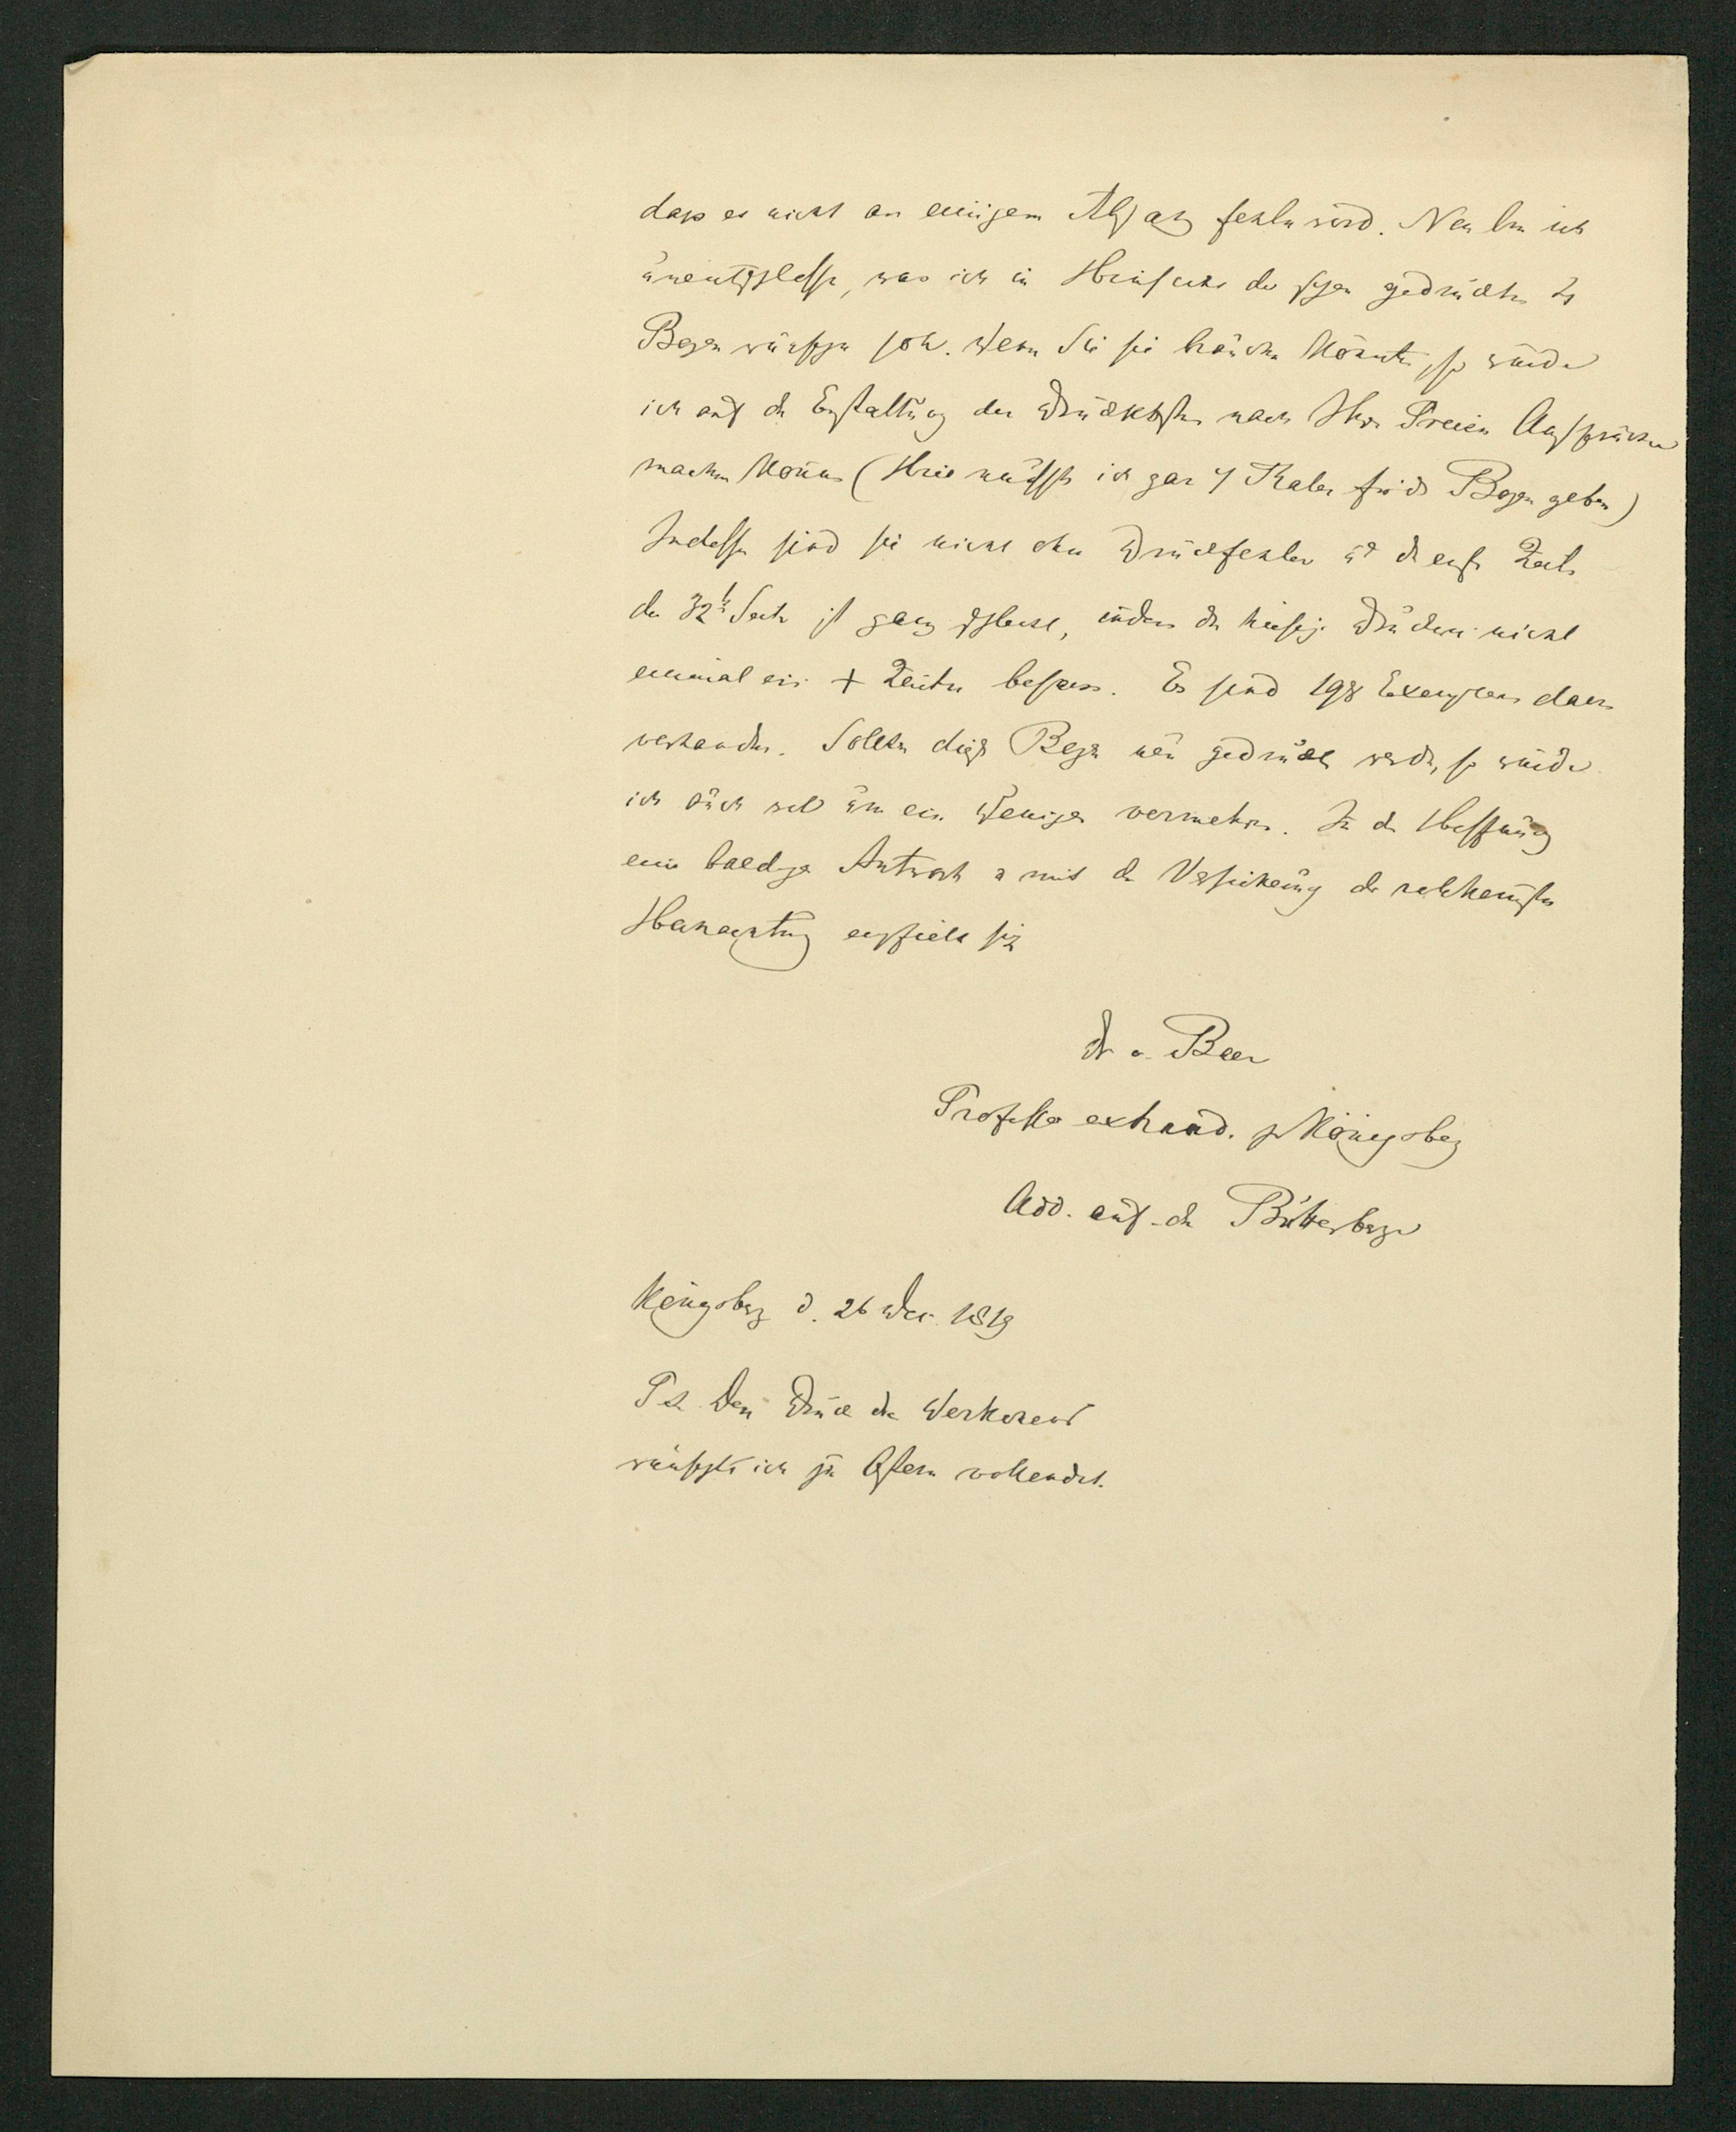 dass es nicht an einigem Absatz fehlen wird. Neu bin ich
unentschlossen, was ich in Hinsicht der schon gedruckten 2
Bogen wünschen soll. Wenn Sie sie brauchen könnten, so würde
ich auf die Erstattung der Druckkosten nach Ihren Preisen Ansprüche
machen können (Hier musste ich gar 7 Thaler für den Bogen geben)
Indessen sind sie nicht ohne Druckfehler und die erste Zeile
der 32ten Seite ist ganz schlecht, indem die hiesige Druckerei nicht
einmal ein + Zeichen besass. Es sind 198 Exemplare davon
vorhanden. Sollten diese Bogen neu gedruckt werden, so würde
ich auch wol um ein Weniges vermehren. In der Hoffnung
einer baldigen Antwort u mit der Versicherung der vollkommensten
Hochachtung empfielt sich
Dr v. Baer
Professor extraord. zu Königsberg
Add. auf dem Butterberge
Königsberg d. 26 Dec. 1819
PS. Den Druck des Werkchens
wünschte ich zu Ostern vollendet.